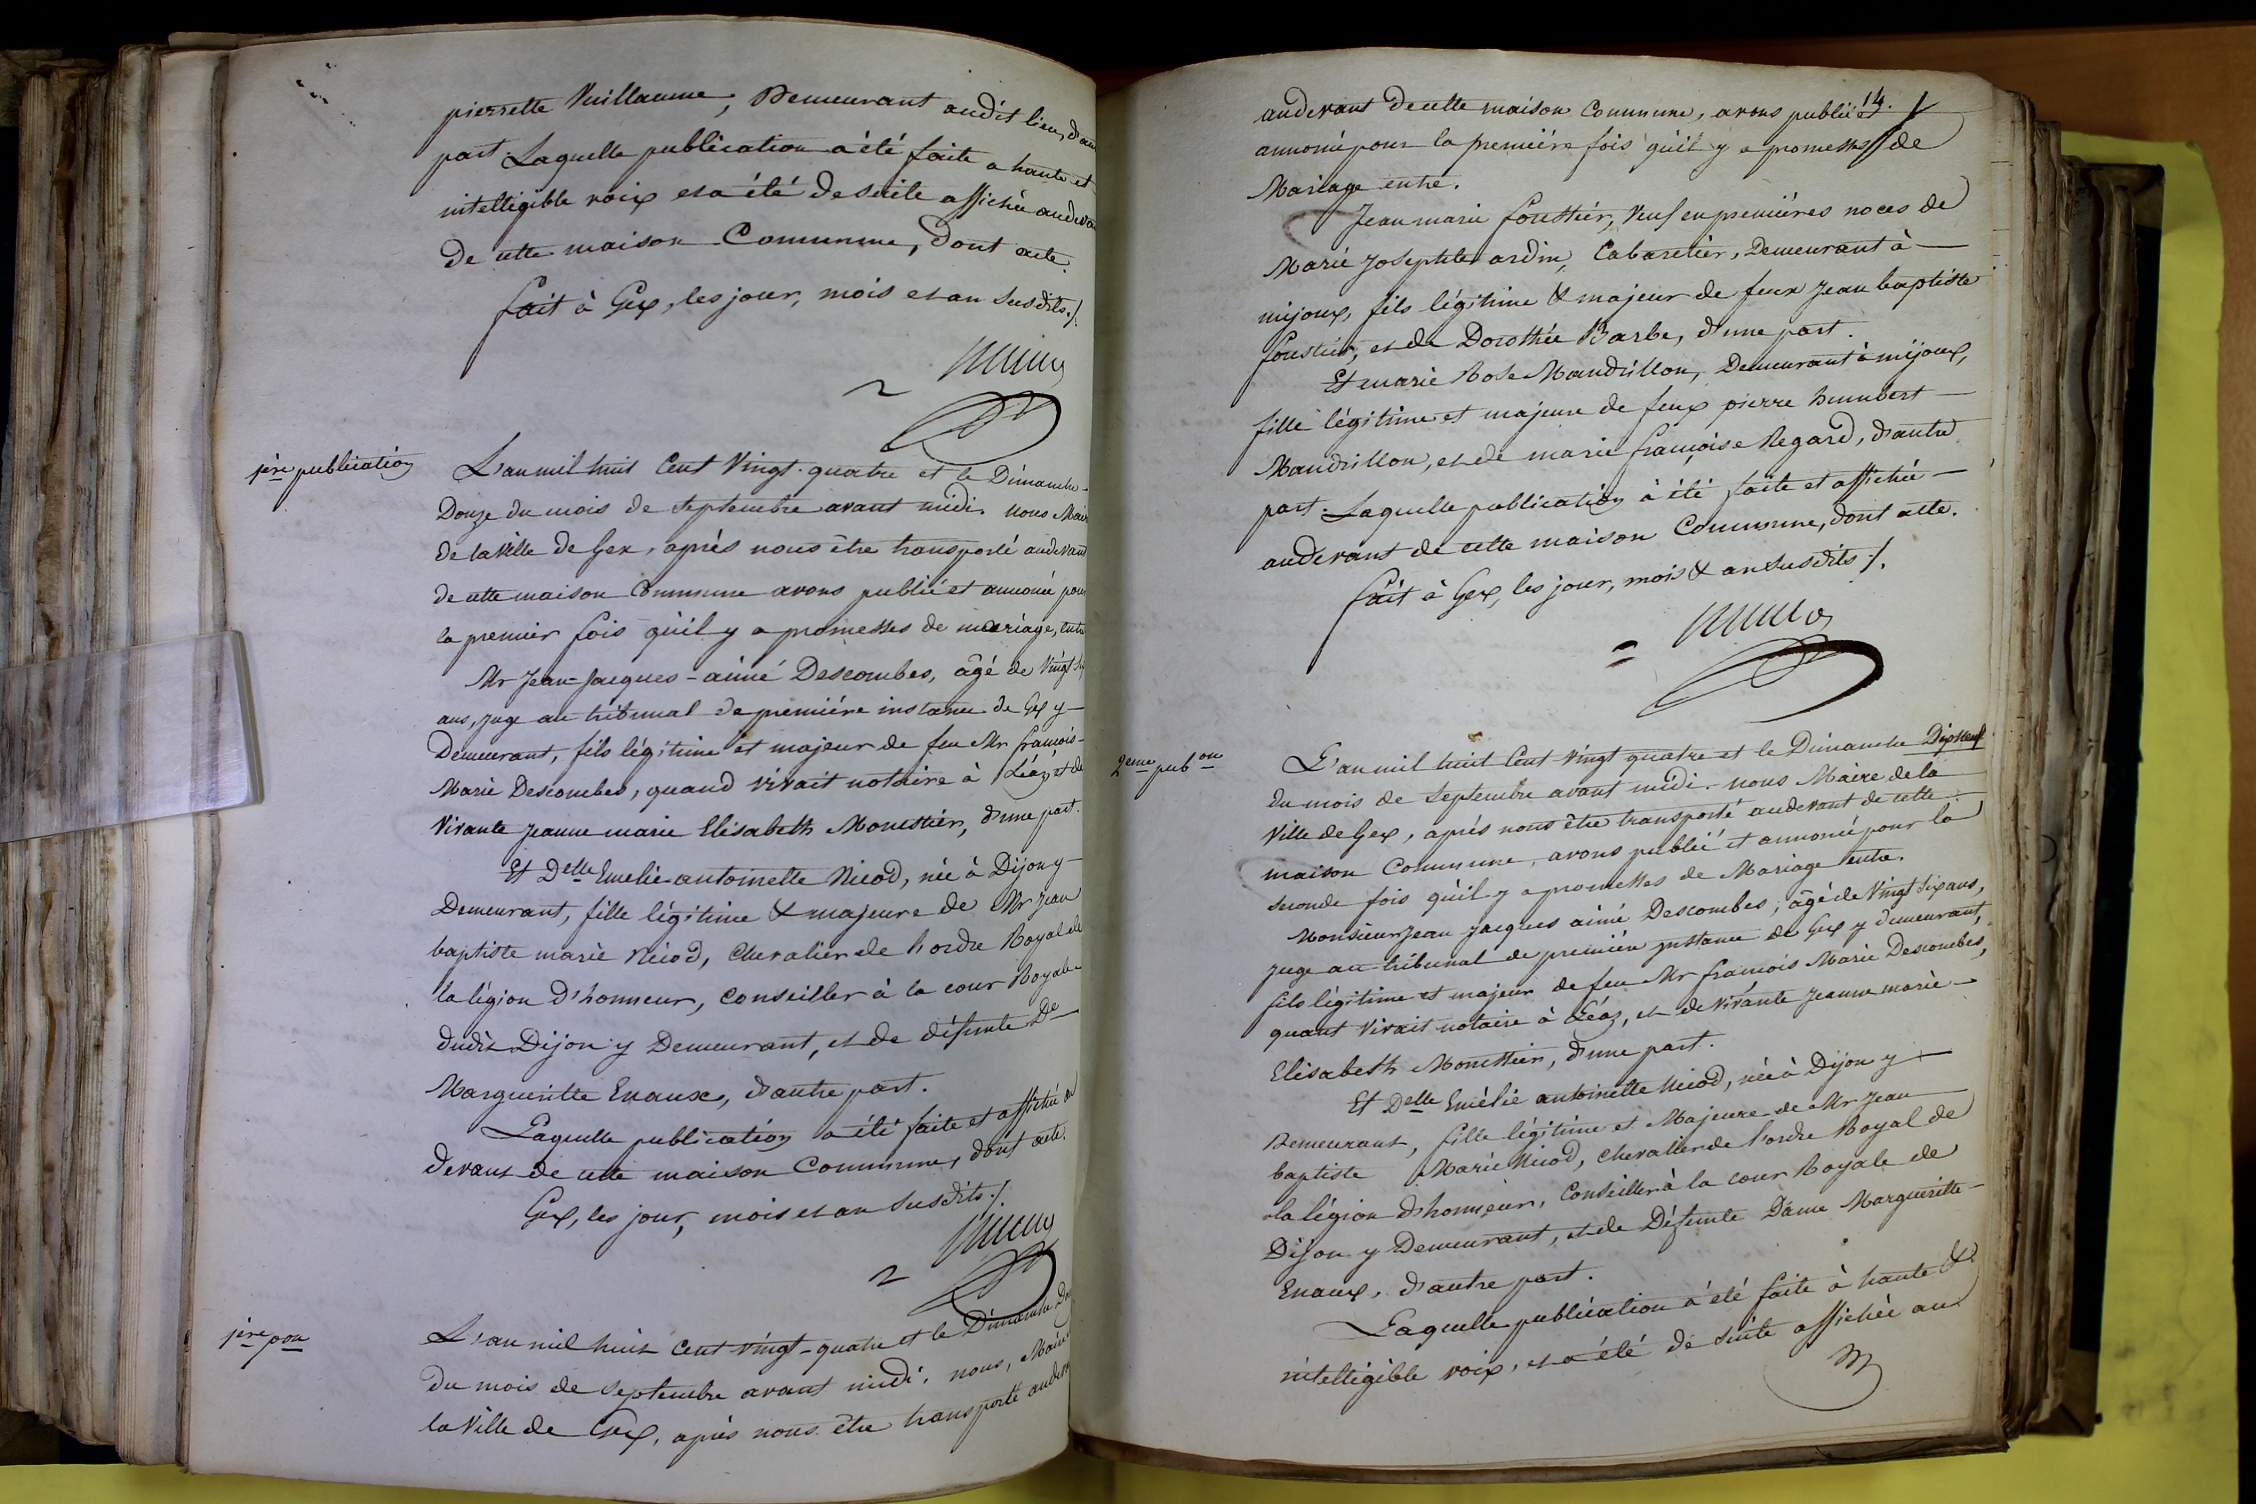 pierrette Vuillaume, Demeurant audit lieu, d'au
part. Laquelle publication à été faite a haute et
intelligible voix et a été de suite affichée audeva
de cette maison Commune, dont acte.
fait à Gex, les jour, mois et an susdits ./.
1ère publication
L'an mil huit Cent Vingt-quatre et le Dimanche
Douze du mois de septembre avant midi. nous Maire
de la Ville de Gex, après nous être transporté audevant
de cette maison Commune avons publié et annoncé pour
la premier fois qu'il y a promesses de mariage, entre
Mr Jean-Jacques-aimé Descombes, âgé de Vingt six
ans, juge au tribunal de première instance de Gex y
Demeurant, fils légitime et majeur de feu Mr françois-
Marie Descombes, quand vivait notaire à Léaz et de
Vivante jeanne marie Elisabeth Monestier, d'une part.
Et Delle Emelie antoinette Nicod, née à Dijon y
Demeurant, fille légitime & majeure de Mr Jean
baptiste marie Nicod, Chevalier de l'ordre Royal de
la légion d'honneur, Conseiller à la cour Royale
dudit Dijon y Demeurant, et de défunte De
Margueritte Enaux, d'autre part.
Laquelle publication a été faite et affichée au
devant de cette maison Commune, dont acte.
Gex, les jour, mois et an susdits ./.
1ère pon
L'an mil huit Cent vingt-quatre et le Dimanche Do
du mois de septembre avant midi. nous, Maire
la Ville de Gex, après nous être transporté audeva
14.
audevant de cette maison Commune, avons publié et
annoncé pour la première fois qu'il y a promesses de
Mariage entre.
Jean marie foustier, Veuf en premières noces de
Marie Josephte ardin, Cabaretier, Demeurant à
mijoux, fils légitime & majeur de feux jean baptiste
foustier, et de Dorothée Barbe, d'une part.
Et marie Rose Mandrillon, Demeurant à mijoux,
fille légitime et majeure de feux pierre humbert
Mandrillon, et de marie françoise Regard, d'autre
part. Laquelle publication à été faite et affichée
audevant de cette maison Commune, dont acte.
fait à Gex, les jour, mois & an susdits ./.
2eme pubon
L'an mil huit Cent Vingt quatre et le Dimanche Dix neuf
du mois de septembre avant midi. nous Maire de la
Ville de Gex, après nous être transporté audevant de cette
maison Commune, avons publié et annoncé pour la
seconde fois qu'il y a promesses de Mariage entre.
Monsieur Jean jacques aimé Descombes, âgé de Vingt six ans,
juge au tribunal de première instance de Gex y demeurant,
fils légitime et majeur de feu Mr françois Marie Descombes,
quant vivait notaire à Léaz, et de vivante jeanne marie
Elisabeth Monestier, d'une part.
Et Delle Emèlie antoinette Nicod, née à Dijon y
Demeurant, fille légitime et Majeure de Mr Jean
baptiste Marie Nicod, Chevalier de l'ordre Royal de
la légion d'honneur, Conseiller à la cour Royale de
Dijon y Demeurant, et de Défunte Dame Margueritte
Enaux, d'autre part.
Laquelle publication à été faite à haute &
intelligible voix, et a été de suite affichée au